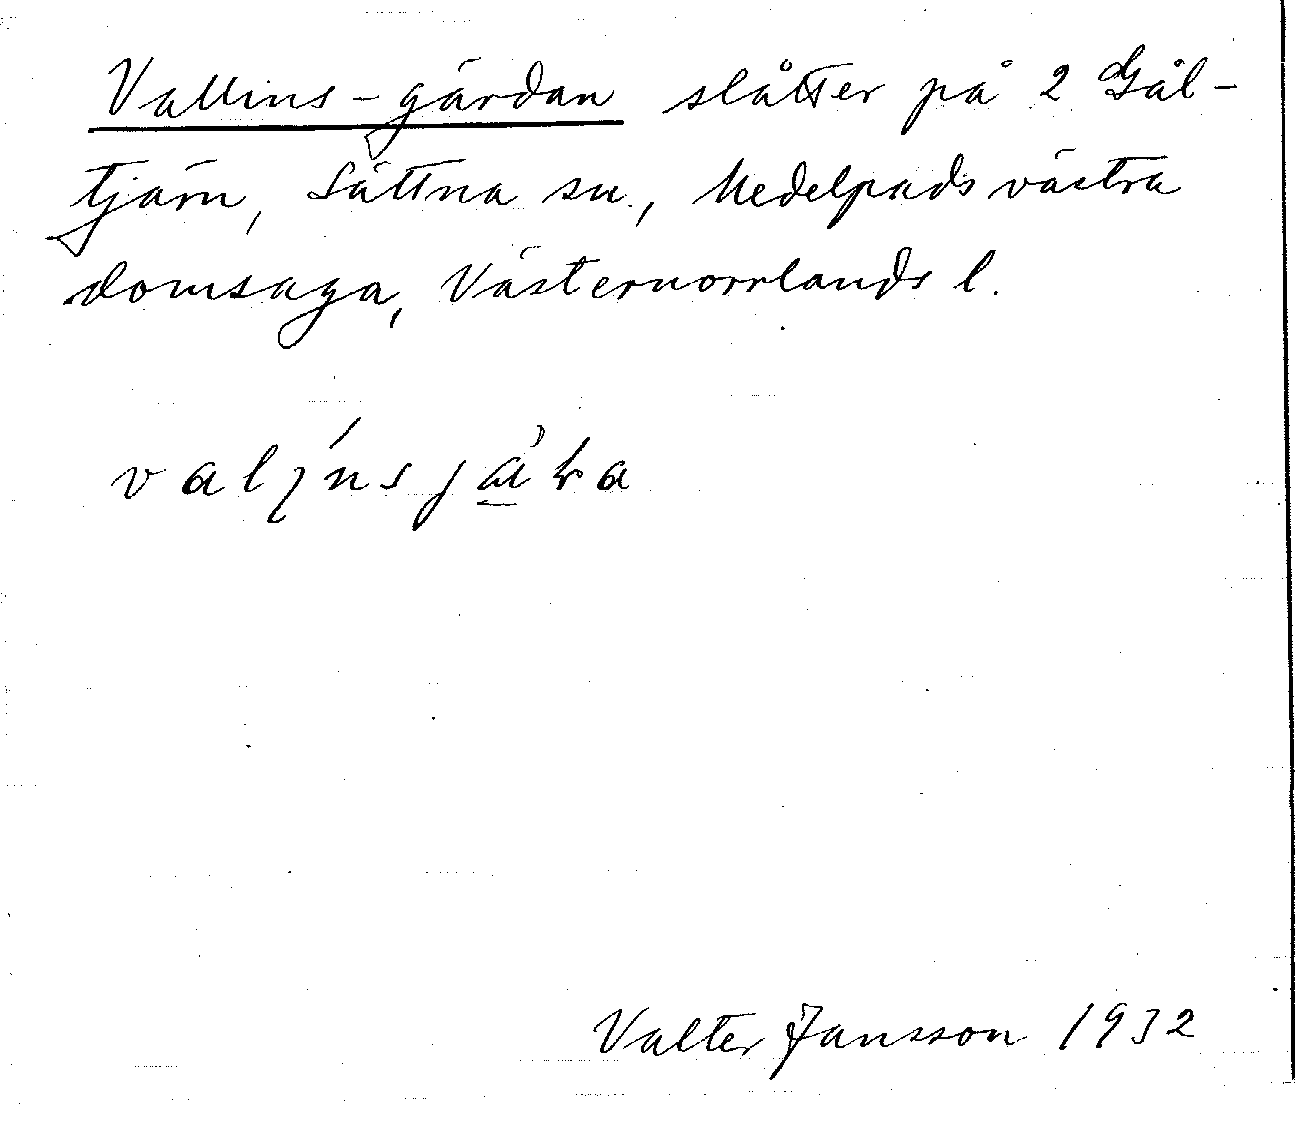 Vallins-gärdan slåtter på 2 Gål-
tjärn, Sättna sn., Medelpads västra
domsaga, Västernorrlands l.
Valter Jansson 1932